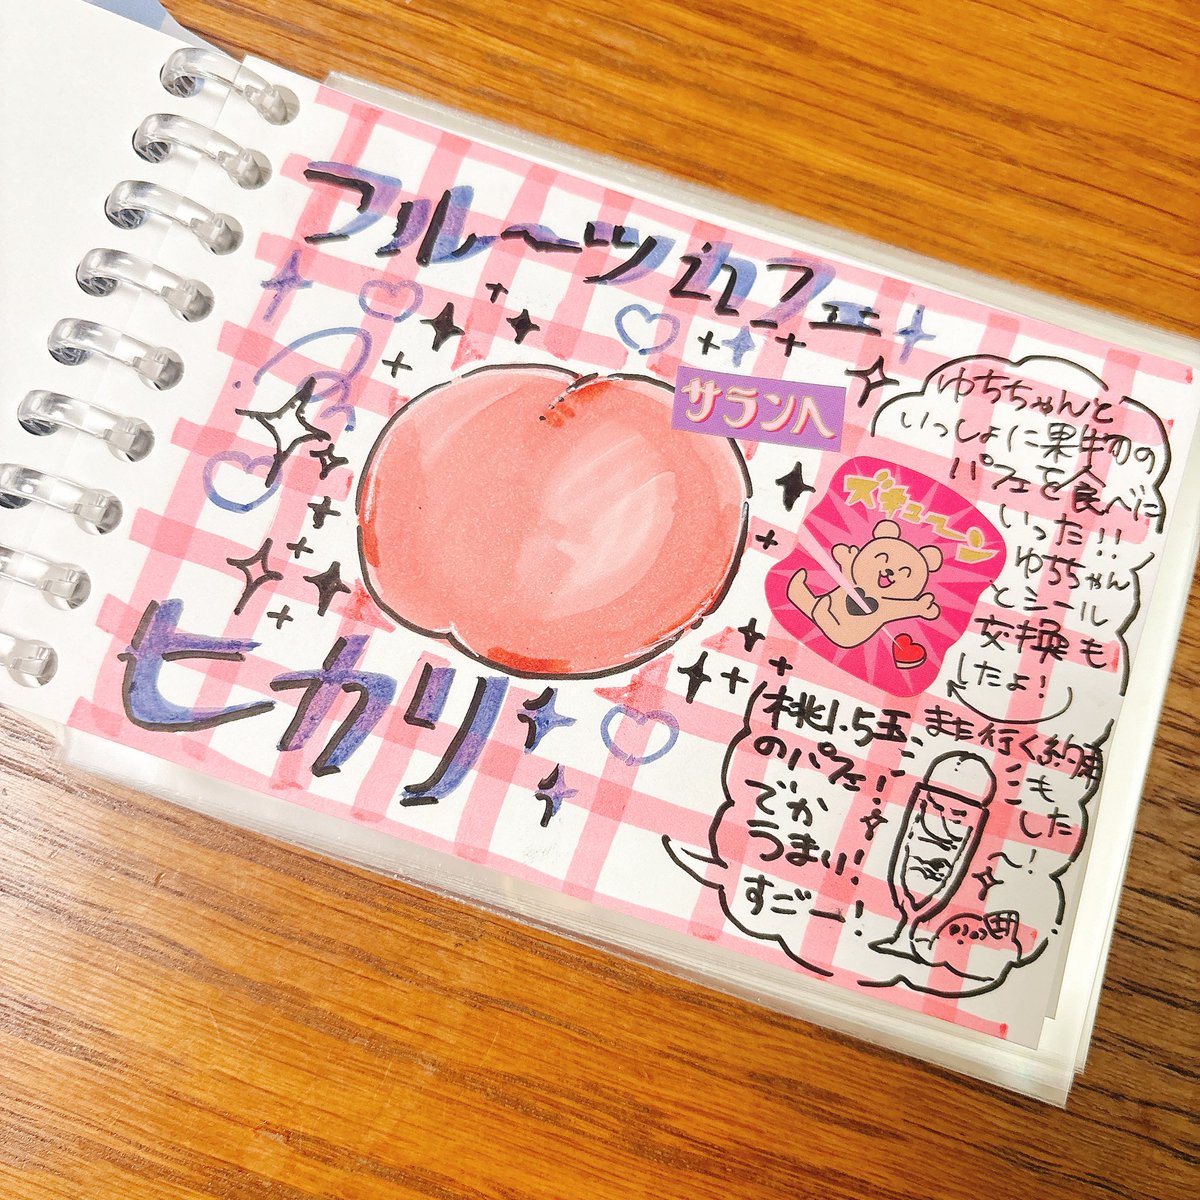 フルーツカフェ
ヒカリ
サランヘ
ズキューン
ゆちちゃんと
いっしょに果物の
パフェを食べに
いった!!
ゆちちゃん
とシール
交換も
したよ!
桃1.5玉
のパフェ!
でか
うまい!
すごー!
また行く約束
もした
〜!